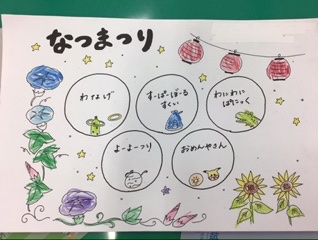 なつまつり
わなげ
すーぱーぼーる
すくい
わにわに
ぱにっく
よーよーつり
おめんやさん